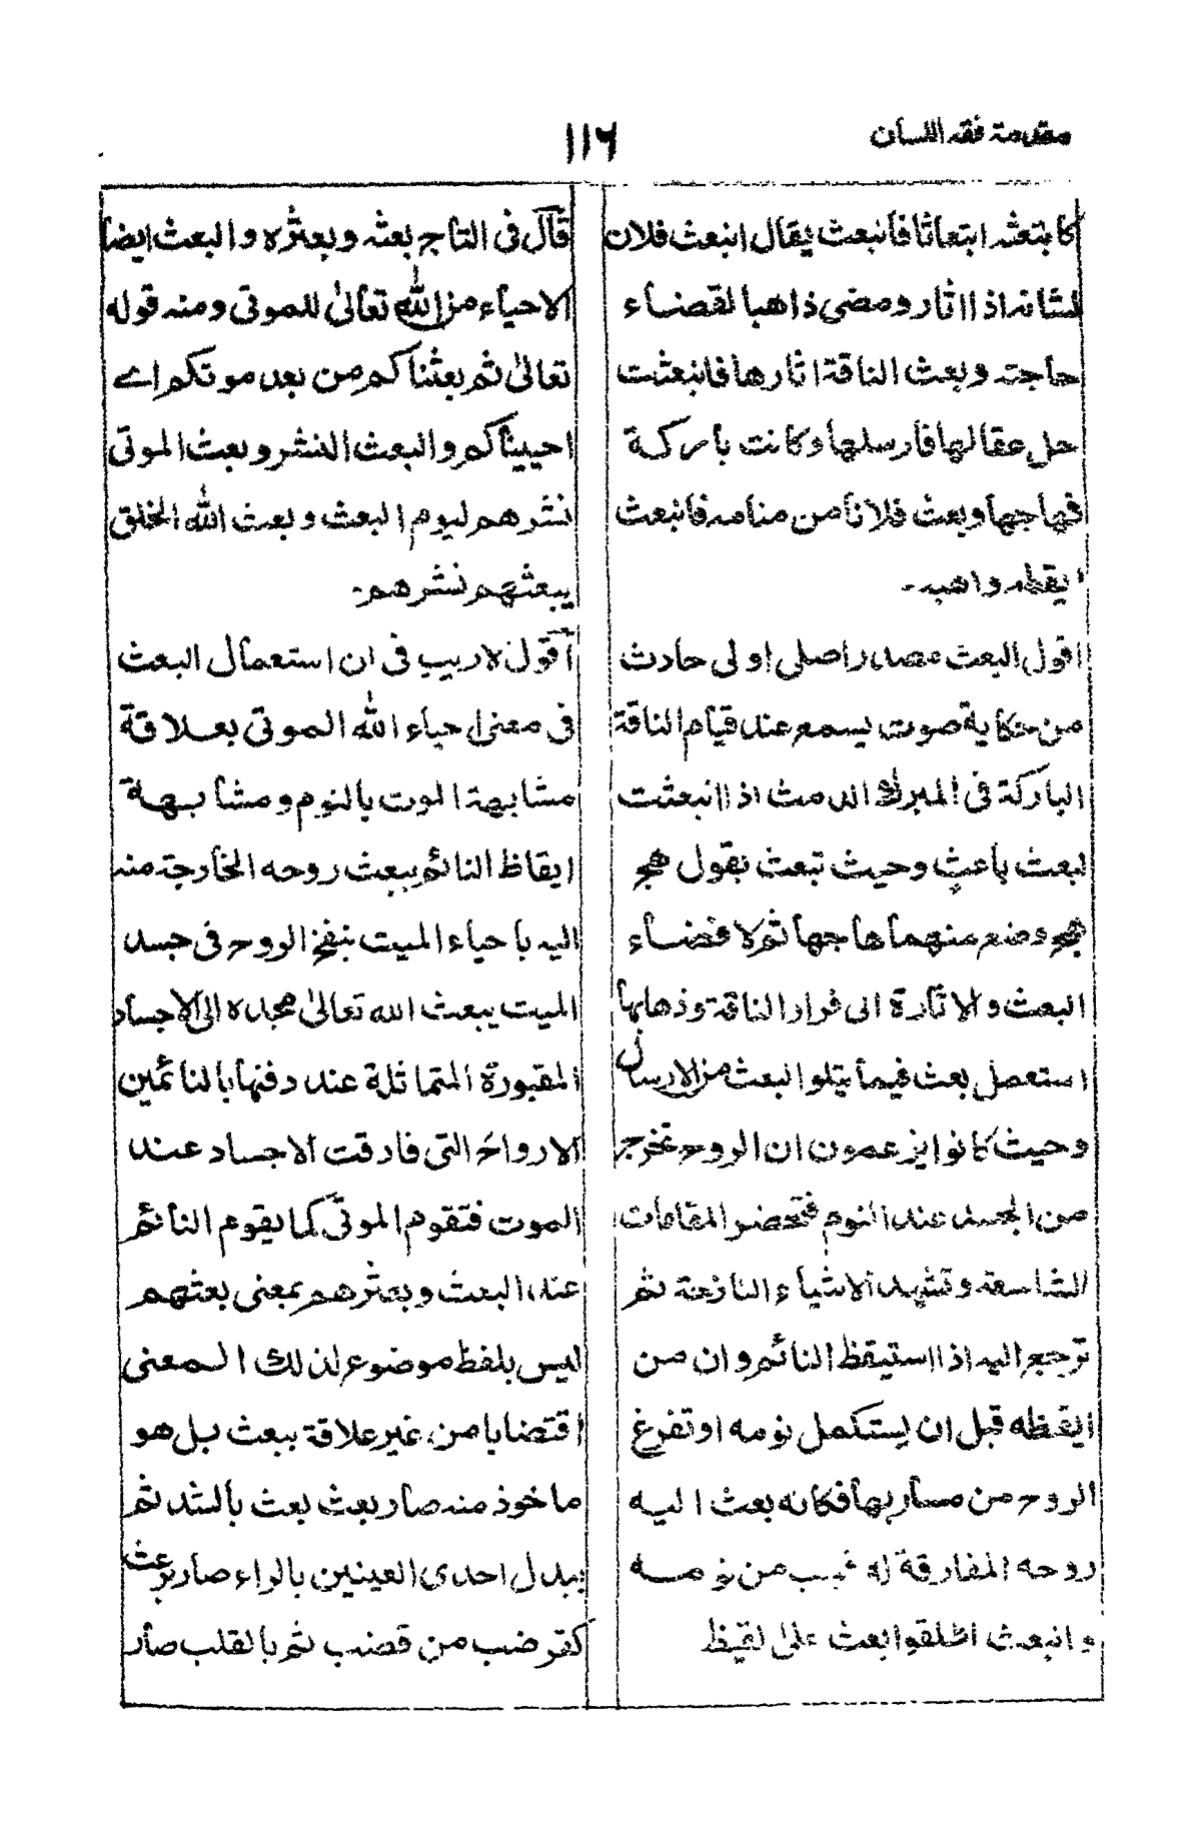 مقدمة فقه اللسان
١١٦
كابتعثه ابتعاثا فانبعث يقال انبعث فلان
لشانه اذا اثار ومضى ذاهبا لقضاء
حاجته وبعث الناقة اثارها فانبعثت
حل عقالها فارسلها وكانت باركة
فهاجها وبعث فلانا من منامه فانبعث
ايقظه واهبه۔
اقول البعث مصدر اصلى اولى حادث
من حكاية صوت يسمع عند قيام الناقة
الباركة فى المبرك الدمث اذا انبعثت
لبعث باعث وحيث تبعث بقول هج
هج وضع منهما هاجها ثم لاقضاء
البعث والاثارة الى فرار الناقة وذهابها
استعمل بعث فيما يتلو البعث من الارسال
وحيث كانوا يزعمون ان الروح تخرج
من الجسد عند النوم فتحضر المقامات
الشاسعة وتشهد الاشياء النازحة ثم
ترجع اليه اذا استيقظ النائم وان من
ايقظه قبل ان يستكمل نومه او تفرغ
الروح من مساربها فكانه بعث اليه
روحه المفارقة له فهب من نومه
وانبعث اطلقوا بعث على لقيظ
قال فى التاج بعثه وبعثره والبعث ايضا
الاحياء من الله تعالىٰ للموتى ومنه قوله
تعالىٰ ثم بعثناكم من بعد موتكم اے
احييناكم والبعث النشر وبعث الموتى
نشرهم ليوم البعث وبعث الله الخلق
يبعثهم نشرهم۔
اقول لاريب فى ان استعمال البعث
فى معنى احياء الله الموتى بعلاقة
مشابهة الموت بالنوم ومشابهة
ايقاظ النائم ببعث روحه الخارجة منه
اليه باحياء الميت بنفخ الروح فى جسد
الميت يبعث الله تعالىٰ مجده الى الاجساد
المقبورة المتماثلة عند دفنها بالنائمين
الارواح التى فارقت الاجساد عند
الموت فتقوم الموتى كما يقوم النائم
عند البعث وبعثرهم بمعنى بعثهم
ليس بلفظ موضوع لذلك المعنى
اقتضابا من غير علاقة ببعث بل هو
ماخوذ منه صار بعث بعث بالشد ثم
ببدل احدى العينين بالراء صار برعث
كقرضب من قضب ثم بالقلب صار